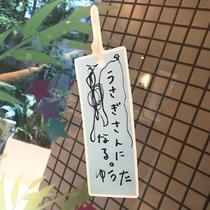 うさぎさんに
なる。
ゆうた